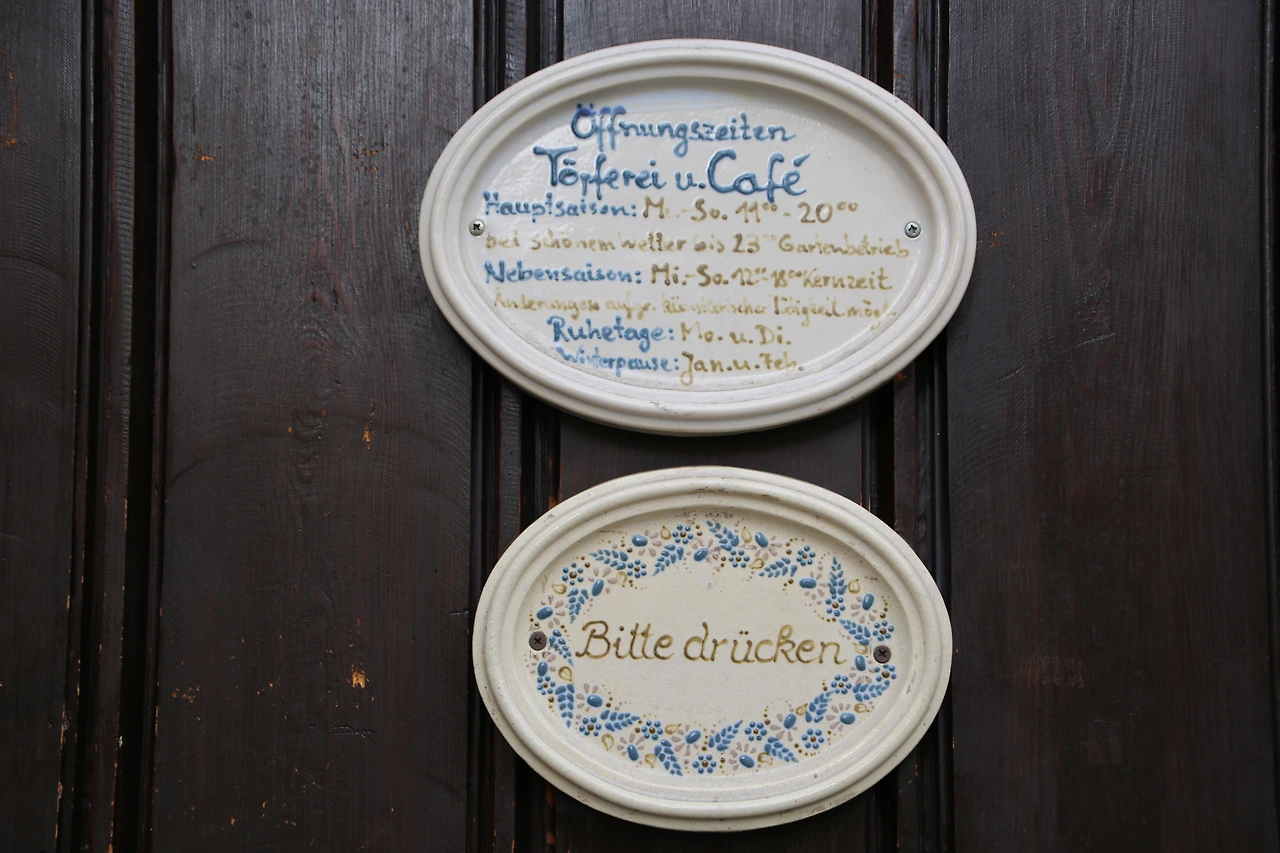 Öffnungszeiten
Töpferei u. Café
Hauptsaison: Mi.-So. 11⁰⁰ - 20⁰⁰
bei schönem Wetter bis 23⁰⁰ Gartenbetrieb
Nebensaison: Mi.-So. 12⁰⁰-18⁰⁰ Kernzeit
Änderungen aufgr. künstlerischer Tätigkeit mögl.
Ruhetage: Mo. u. Di.
Winterpause: Jan. u. Feb.
Bitte drücken